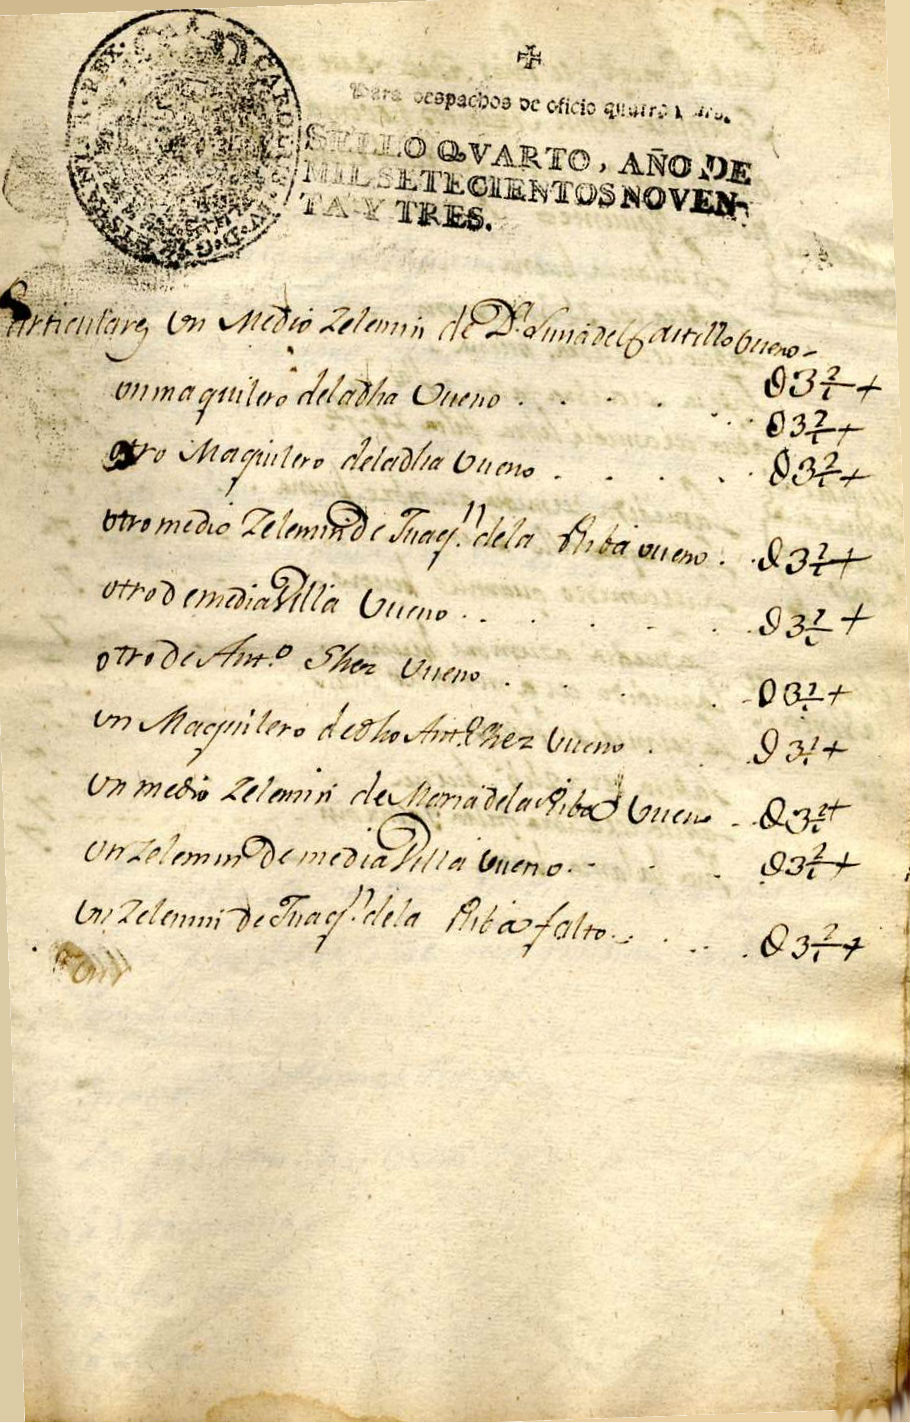 CAROLUS IV D G HISPANIAR REX
Para despachos de oficio quatro mrs.
SELLO QVARTO, AÑO DE
MIL SETECIENTOS NOVEN-
TA Y TRES.
Particulares Un Medio Zelemin de Da. Luisa del Castillo bueno-
un maquilero dela dha Vueno . . . . 03½+
03½+
otro Maquilero dela dha Vueno . . . . 03½+
otro medio Zelemin de Juaqn. dela Riba vueno . . 03½+
otro de media Villa Vueno . . . . . 03½+
otro de Anto. Shez Vueno . . . . 03½+
un Maquilero de dho Anto. Shez Vueno . . . 03½+
un medio Zelemin de Maria dela Riba Vueno . . 03½+
un Zelemin de media Villa bueno . . . 03½+
un Zelemin de Juaqn. dela Riba falto . . . 03½+